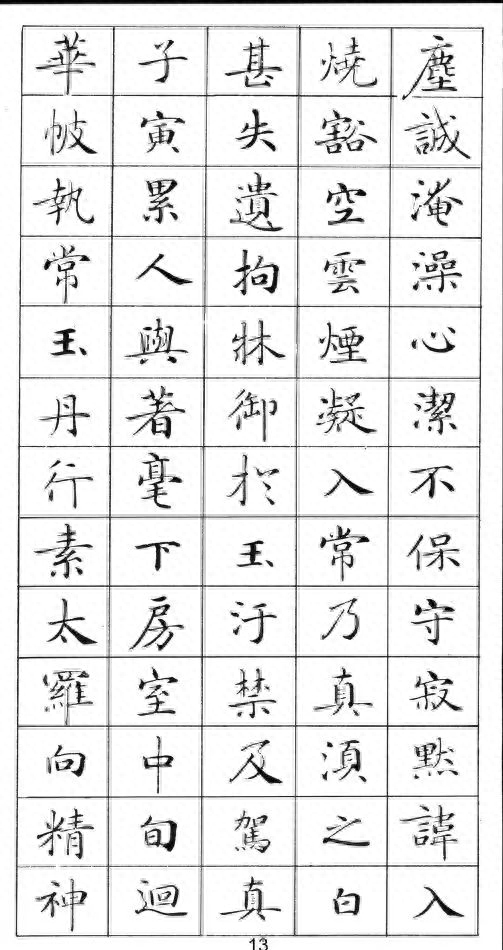 塵誠淹澡心潔不保守寂默諱入
燒豁空雲煙凝入常乃真湏之白
甚失遺拘牀御扵玉汙禁及駕真
子寅累人輿著毫下房室中旬迴
華帔執常玉丹行素太羅向精神
13